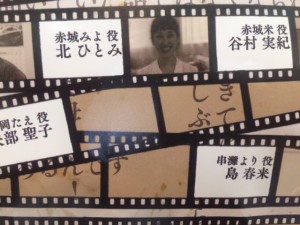 赤城みよ 役
北 ひとみ
赤城米 役
谷村 実紀
岡たえ 役
部 聖子
しぶ
きて
るんです
串灘より 役
島 春来